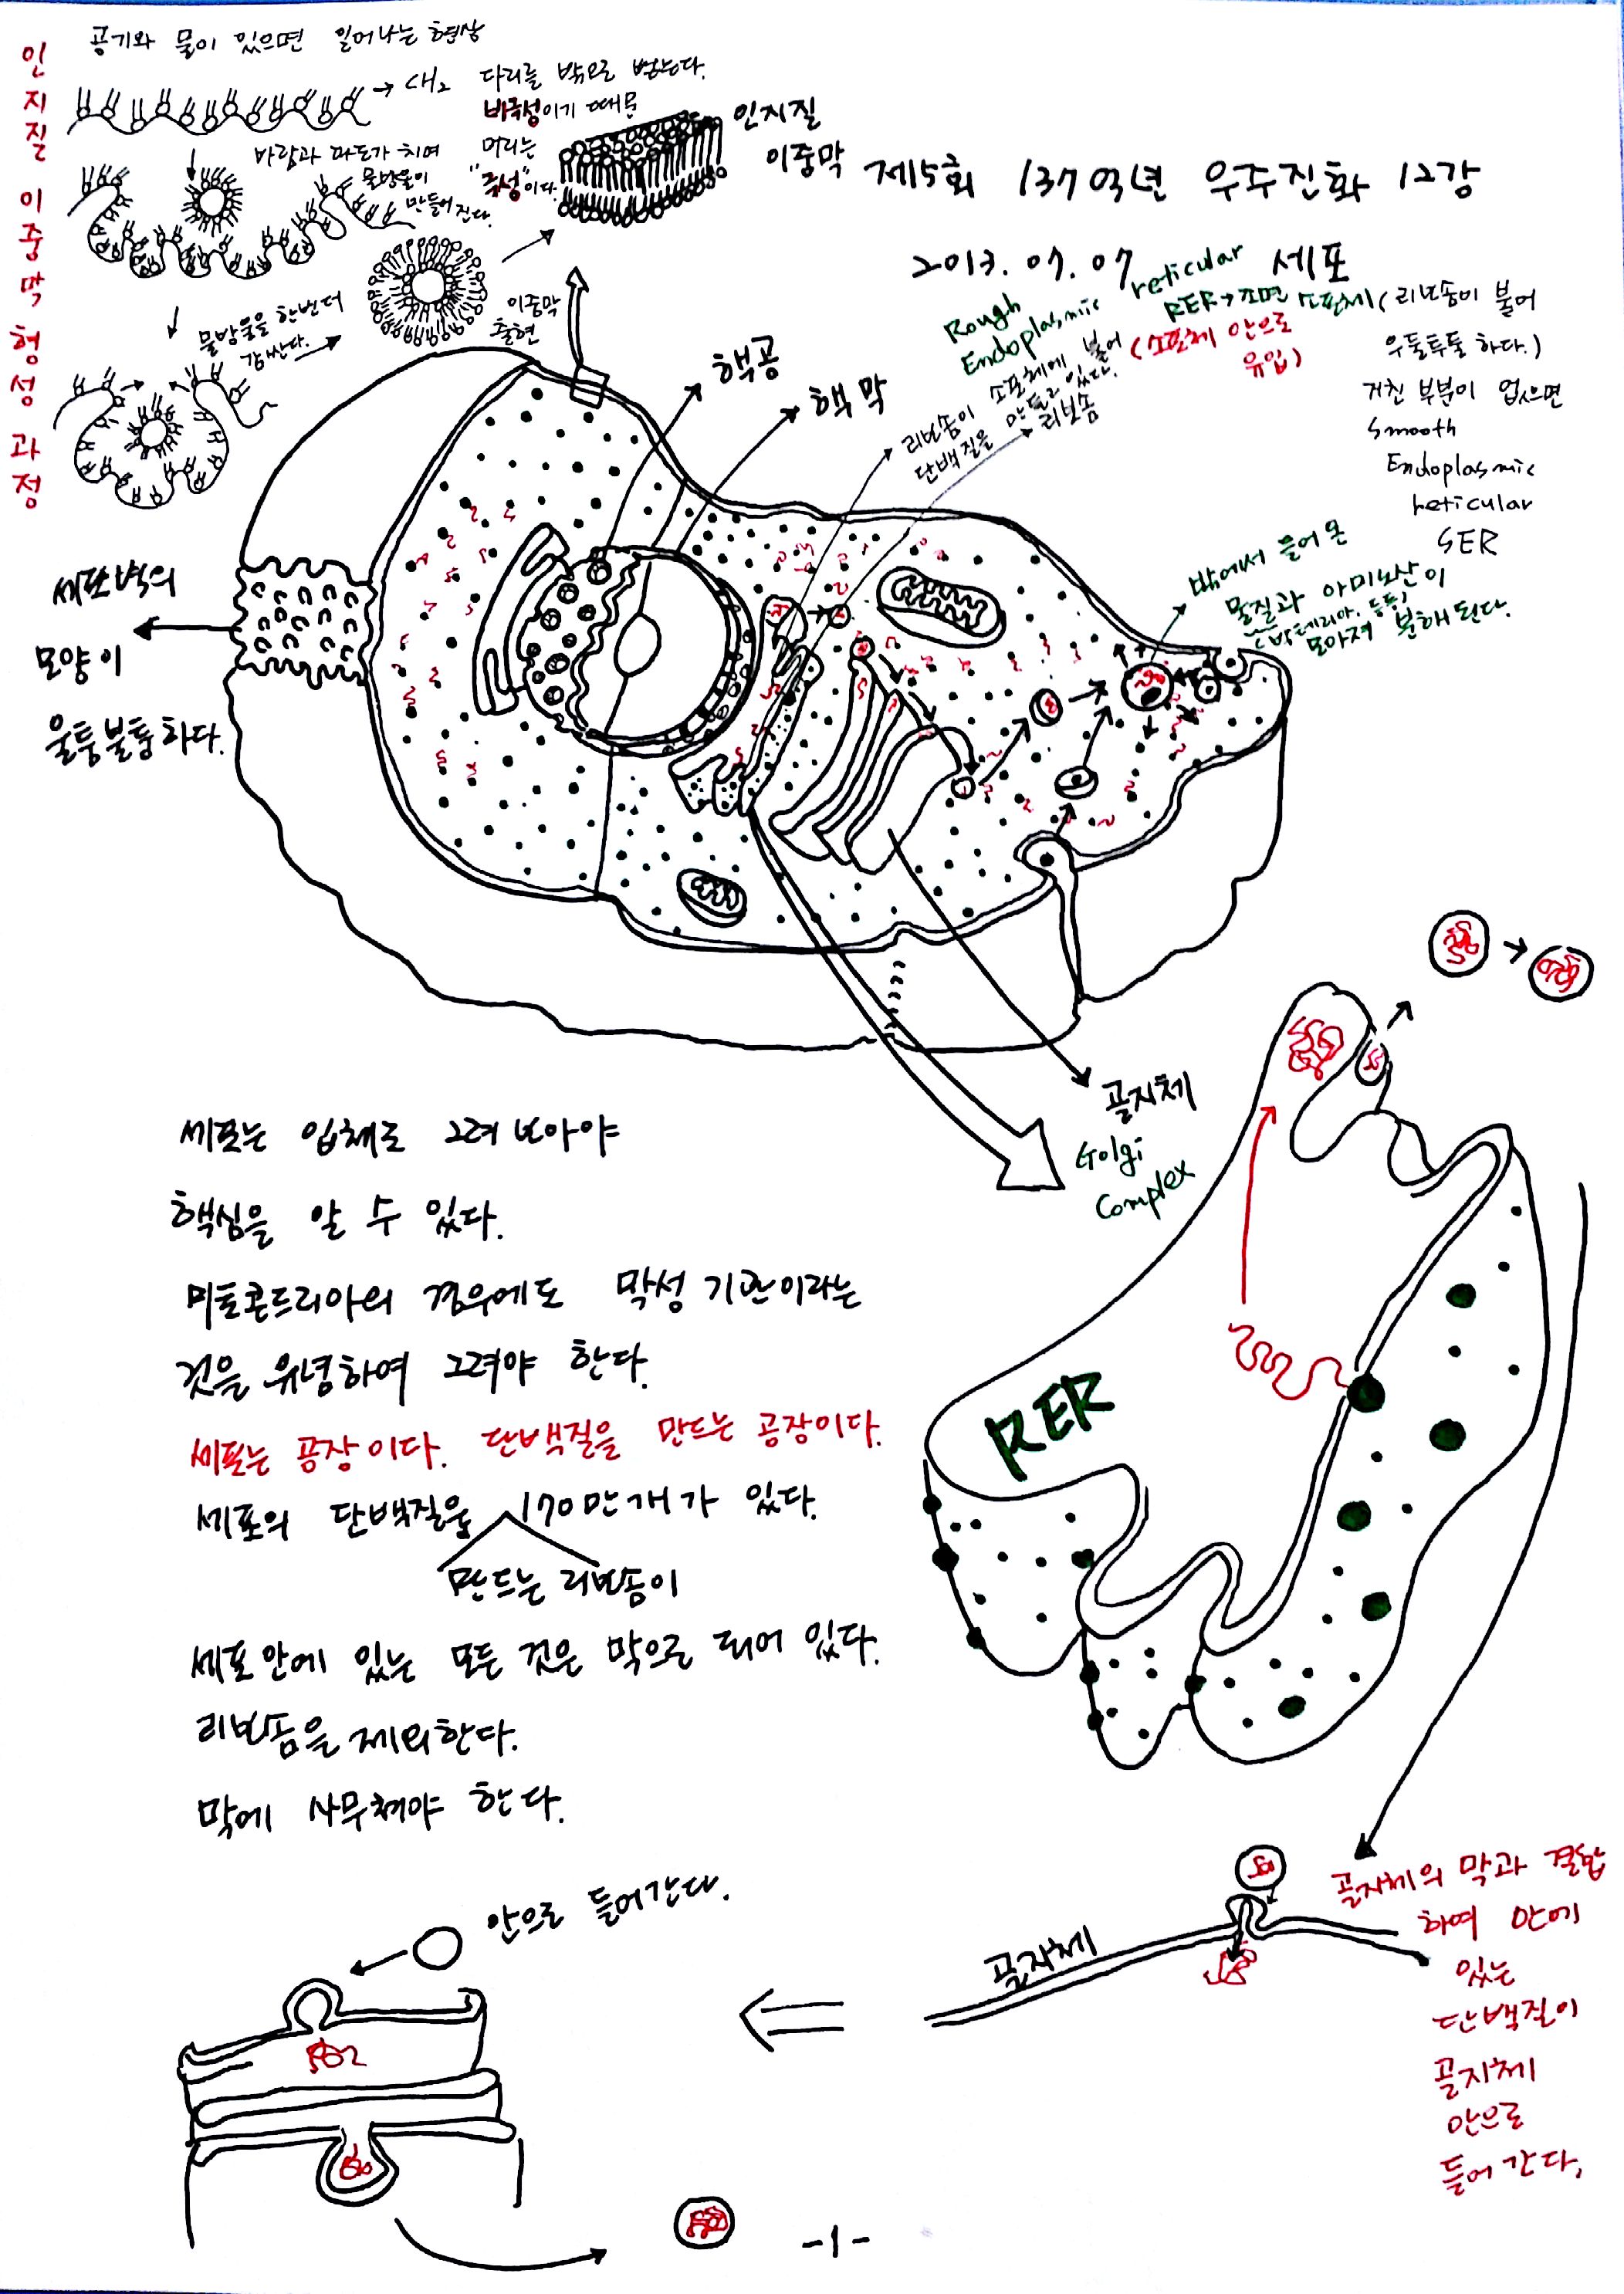 인지질 이중막 형성 과정
공기와 물이 있으면 일어나는 현상
→ CH₂ 다리를 밖으로 뻗는다.
비극성이기 때문
머리는
"극성"이다.
바람과 파도가 치며
물방울이
만들어 진다.
물방울을 한번더
감싼다.
이중막
출현
인지질
이중막
제15회 137억년 우주진화 12강
2013.07.07 세포
Rough
Endoplasmic
reticular
RER→조면 소포체(리보솜이 붙어
우둘투둘 하다.)
(소포체 안으로
유입)
거친 부분이 없으면
smooth
Endoplasmic
reticular
SER
핵공
핵막
리보솜이 소포체에 붙어
단백질을 만들고 있다.
리보솜
밖에서 들어온
물질과 아미노산이
(박테리아, 등등)
모아져 분해된다.
세포벽의
모양이
울퉁불퉁하다.
골지체
Golgi
Complex
세포는 입체로 그려 보아야
핵심을 알 수 있다.
미토콘드리아의 경우에도 막성 기관이라는
것을 유념하여 그려야 한다.
세포는 공장이다. 단백질을 만드는 공장이다.
세포의 단백질을 170만개가 있다.
만드는 리보솜이
세포안에 있는 모든 것은 막으로 되어 있다.
리보솜을 제외한다.
막에 사무쳐야 한다.
RER
안으로 들어간다.
골지체
골지체의 막과 결합
하여 안에
있는
단백질이
골지체
안으로
들어간다.
-1-